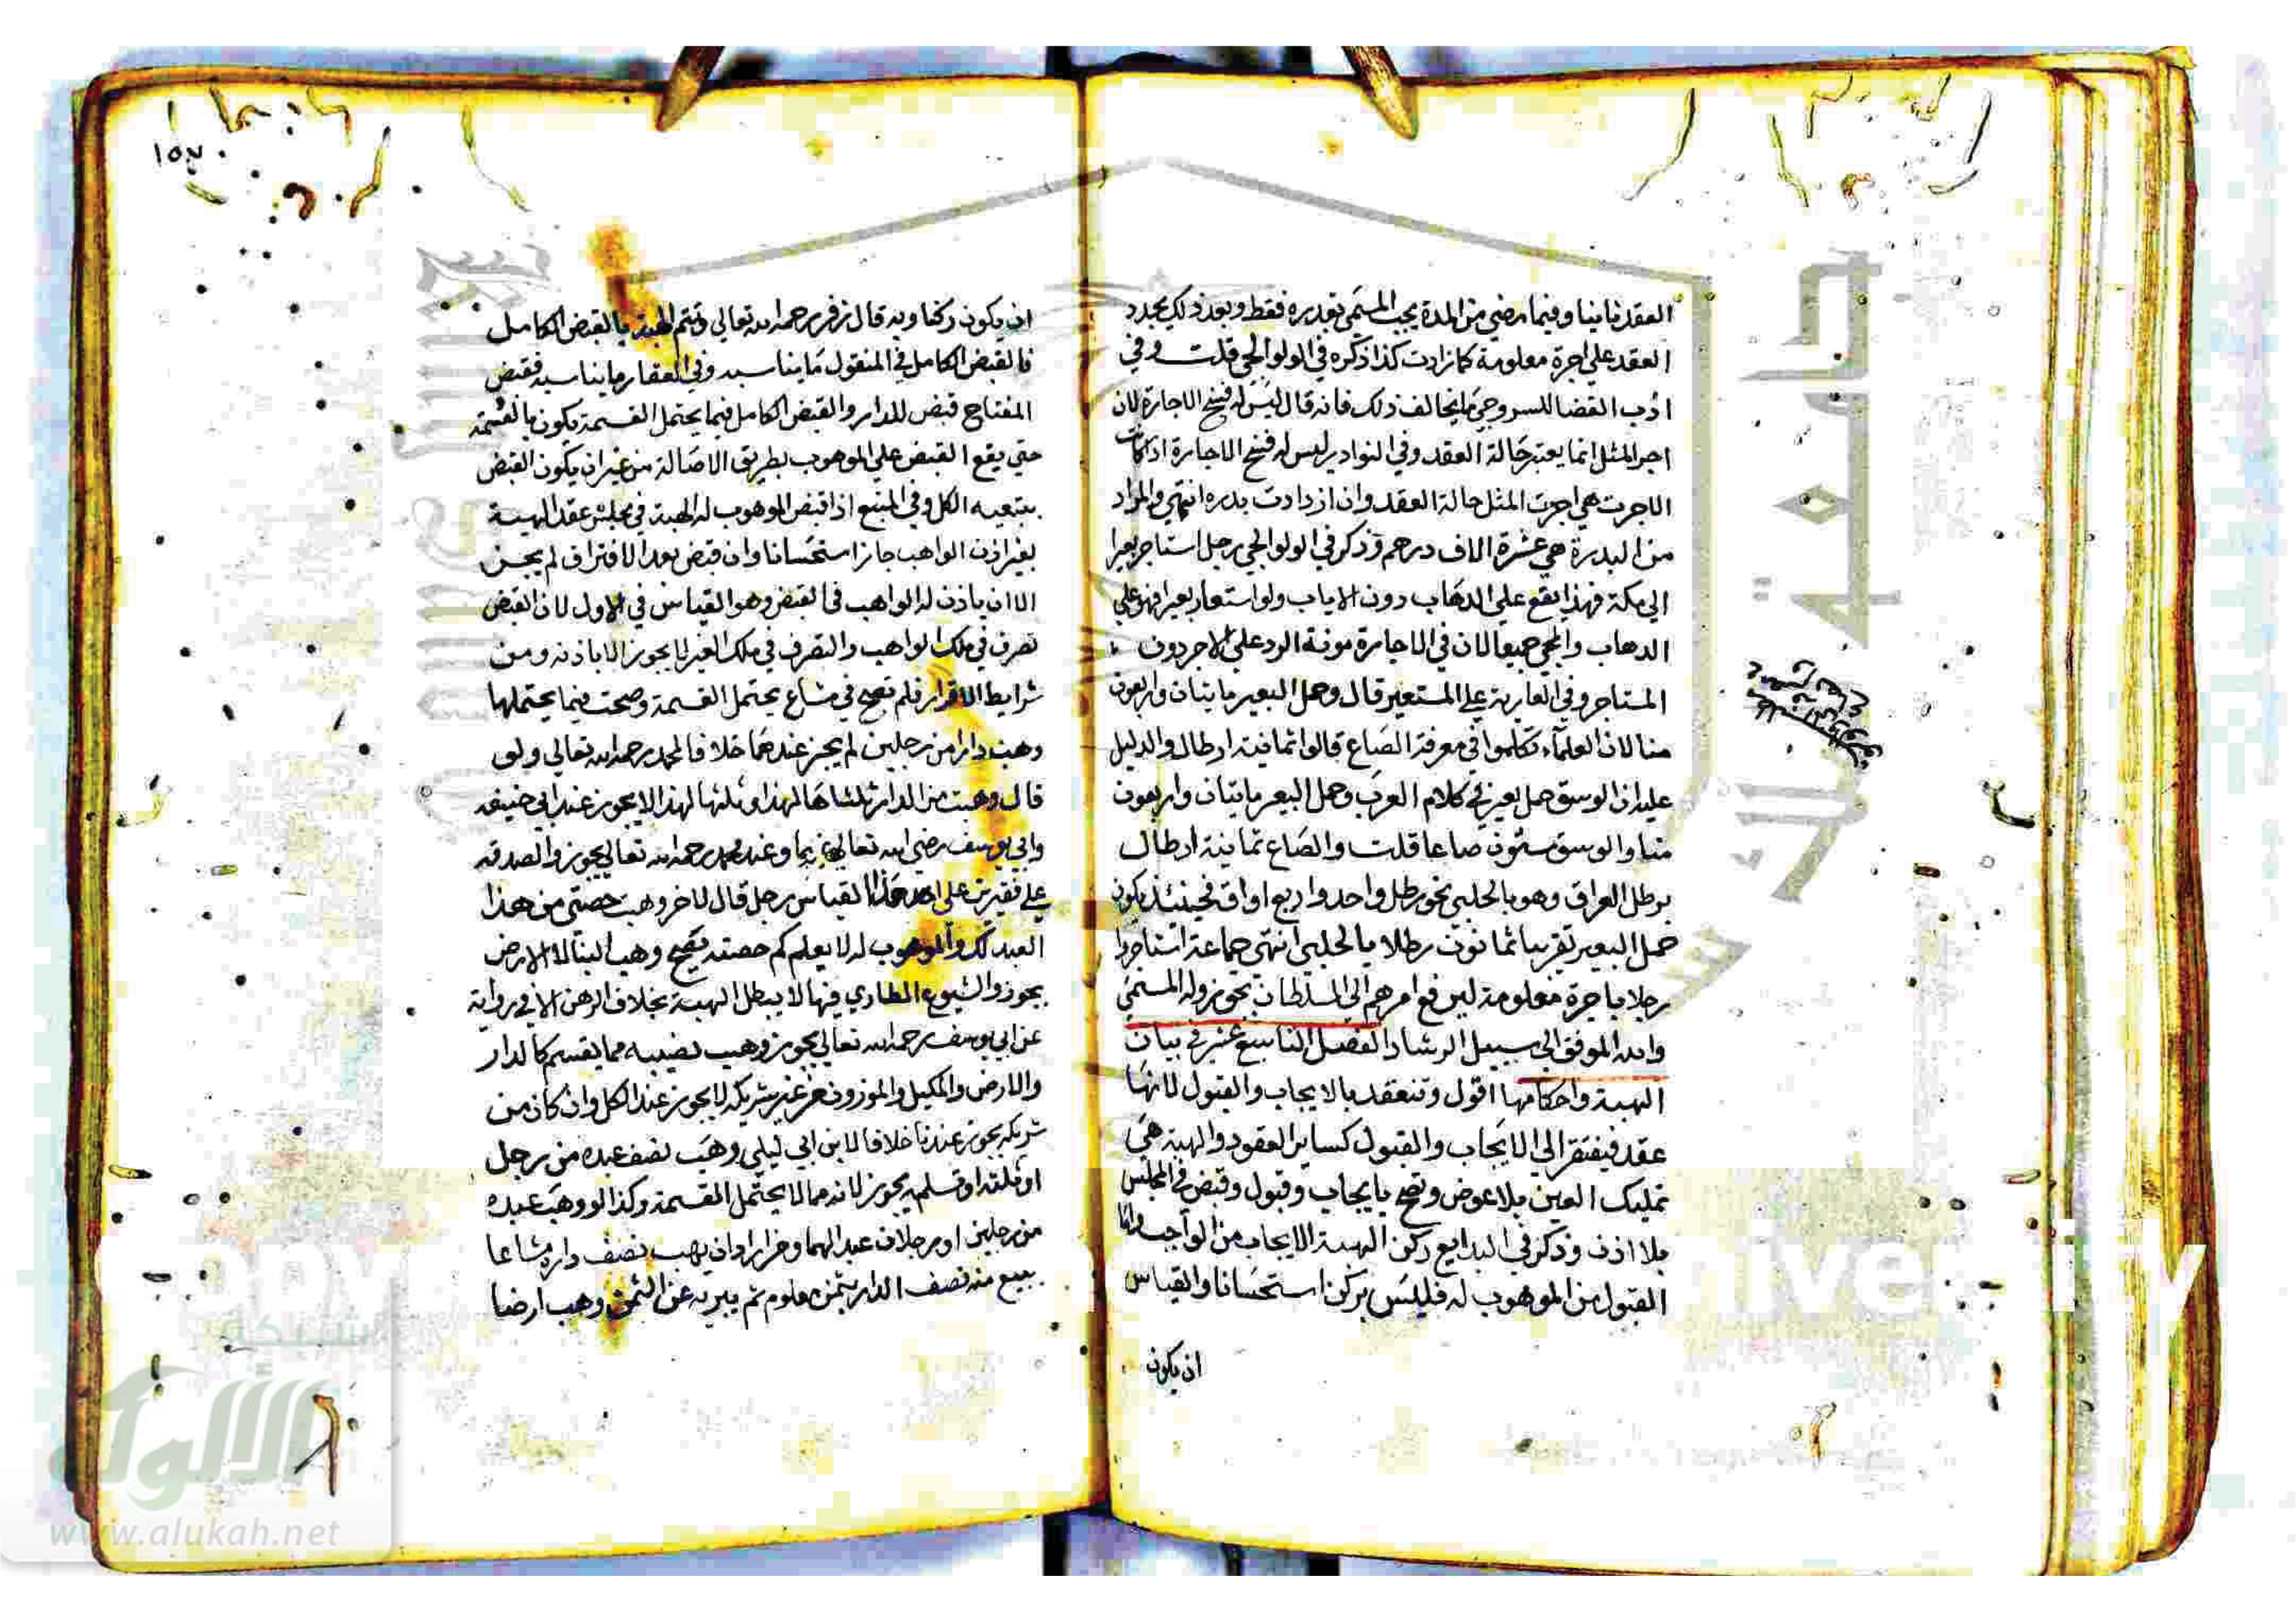 العقد ثانيا وفيما مضي من المدة يجب المسمي بقدره فقط وبعد ذلك يجدد
العقد علي اجرة معلومة كما زادت كذا ذكره في الولوالجي قلت وفي
ادب القضا للسروجي ما يخالف ذلك فانه قال ليس له فسخ الاجارة لان
اجر المثل انما يعتبر حالة العقد وفي النوادر ليس له فسخ الاجارة اذا كانت
الاجرت هي اجرت المثل حالة العقد وان ازدادت بدره انتهي والمراد
من البدرة هي عشرة الاف درهم وذكر في الولوالجي رجل استاجر بعيرا
الي مكة فهذا يقع علي الدهاب دون الاياب ولو استعار بعيرا فهو علي
الدهاب والمجي جميعا لان في الاجارة مونة الرد علي الاجر دون
المستاجر وفي العارية علي المستعير قال وحمل البعير مايتان واربعون
منا لان العلماء تكلموا في معرفة الصاع قالوا ثمانية ارطال والدليل
عليه ان الوسق حمل بعير في كلام العرب وحمل البعير مايتان واربعون
منا والوسق ستون صاعا قلت والصاع ثمانية ارطال
برطل العراق وهو بالحلبي نحو رطل واحد واربع اواق فحينئذ يكون
حمل البعير تقريبا ثمانون رطلا بالحلبي انتهي جماعة استاجروا
رجلا باجرة معلومة ليرفع امرهم الي السلطان تجوز وله المسمي
والله الموفق الي سبيل الرشاد الفصل التاسع عشر في بيان
الهبة واحكامها اقول وتنعقد بالايجاب والقبول لانها
عقد فيفتقر الي الايجاب والقبول كساير العقود والهبة هي
تمليك العين بلا عوض وتصح بايجاب وقبول وقبض في المجلس
بلا اذن وذكر في البدايع ركن الهبة الايجاب من الواجب واما
القبول من الموهوب له فليس بركن استحسانا والقياس
ان يكون
١٥٧
ان يكون ركنا وبه قال زفر رحمه الله تعالي وتتم الهبة بالقبض الكامل
فالقبض الكامل في المنقول ما يناسبه وفي العقار ما يناسبه فقبض
المفتاح قبض للدار والقبض الكامل فيما يحتمل القسمة يكون بالقسمة
حتي يقع القبض علي الموهوب بطريق الاصالة من غير ان يكون القبض
بتبعيه الكل وفي المنبع اذا قبض الموهوب له الهبة في مجلس عقد الهبة
بغير اذن الواهب جاز استحسانا وان قبض بعد الافتراق لم يجز
الا ان ياذن له الواهب في القبض وهو القياس في الاول لان القبض
تصرف في ملك الواهب والتصرف في ملك الغير لا يجوز الا باذنه ومن
شرايط الاقرار فلم تصح في مشاع يحتمل القسمة وصحت فيما يحتملها
وهب دارا من رجلين لم يجز عندهما خلافا لمحمد رحمه الله تعالي ولو
قال وهبت من الدار ثلثاها لهذا وثلثها لهذا لا يجوز عند ابي حنيفه
وابي يوسف رضي الله تعالي عنهما وعند محمد رحمه الله تعالي يجوز والصدقه
علي فقيرين علي هذا القياس رجل قال لاخر وهبت حصتي من هذا
العبد لك والموهوب له لا يعلم كم حصته يصح وهب البنا لا الارض
يجوز والشيوع الطاري فيها لا يبطل الهبة بخلاف الرهن الا في رواية
عن ابي يوسف رحمه الله تعالي يجوز وهب نصيبه مما يقسم كالدار
والارض والمكيل والموزون من غير شريكه لا يجوز عند الكل وان كان من
شريكه يجوز عندنا خلافا لابن ابي ليلي وهب نصف عبده من رجل
او ثلثه او تسلمه يجوز لانه مما لا يحتمل القسمة وكذا لو وهب عبده
من رجلين او رجلان عبدا لهما ومن اراد ان يهب نصف داره مشاعا
يبيع منه نصف الدار بثمن معلوم ثم يبريه عن الثمن وهب ارضا
شبكة
الالوكة
www.alukah.net